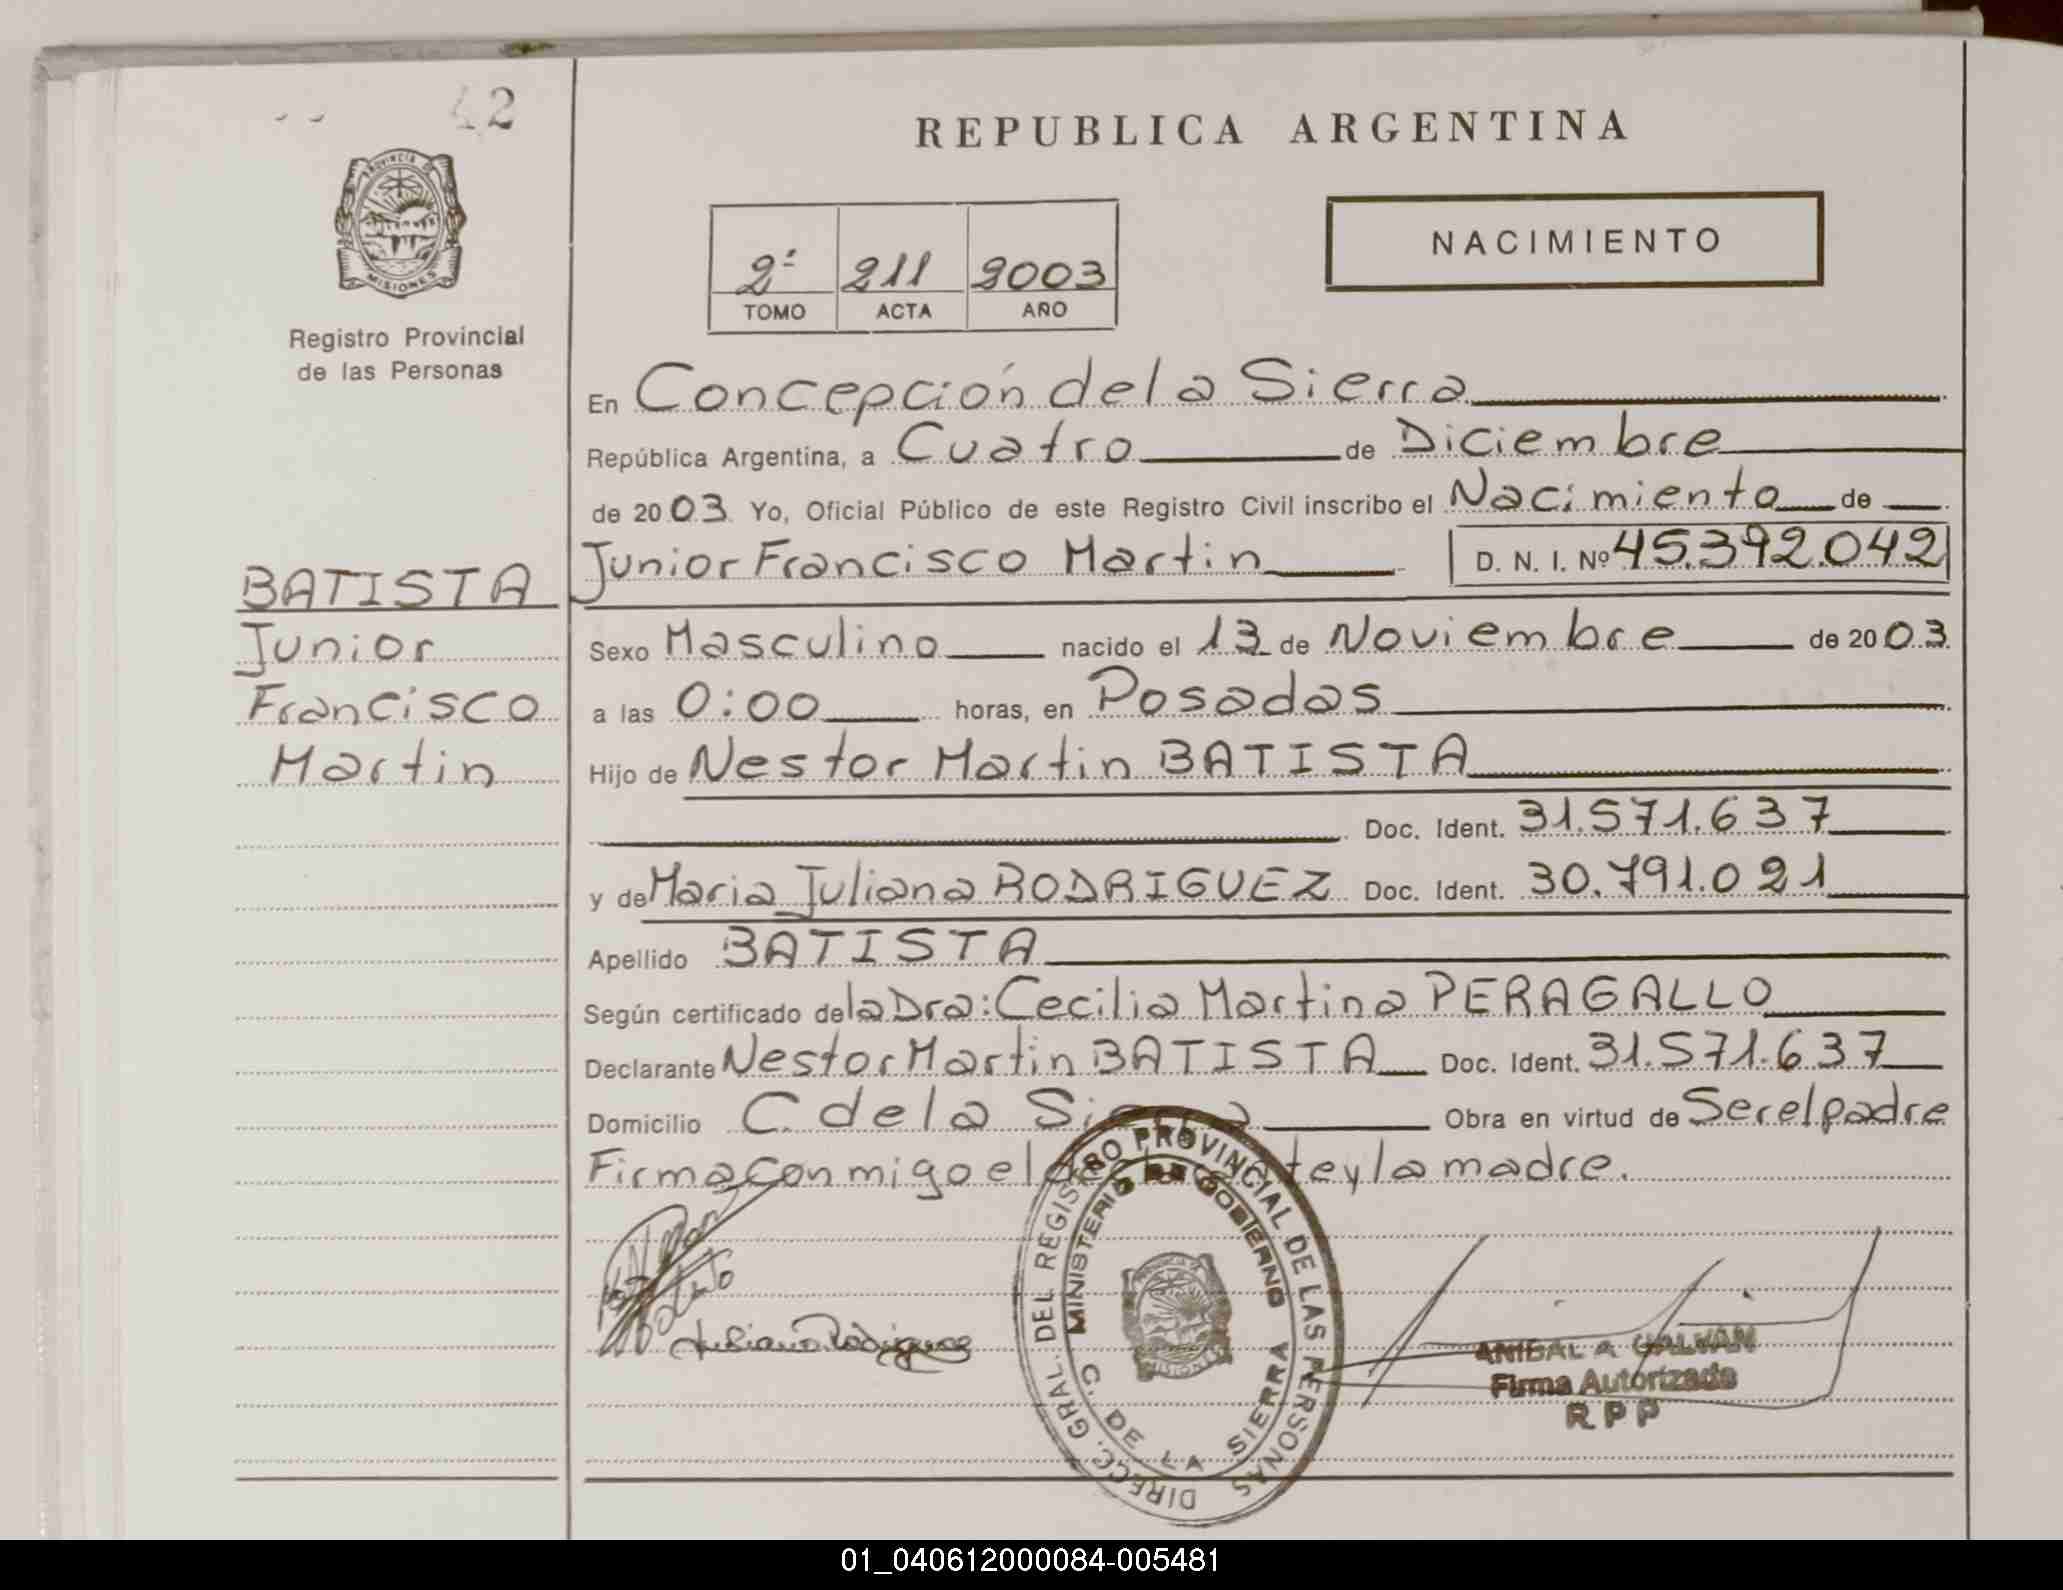 42
REPUBLICA ARGENTINA
PROVINCIA DE
MISIONES
Registro Provincial
de las Personas
2º 211 2003
TOMO ACTA AÑO
NACIMIENTO
En Concepción de la Sierra
República Argentina, a Cuatro de Diciembre
de 2003 Yo, Oficial Público de este Registro Civil inscribo el Nacimiento de
Junior Francisco Martin D. N. I. Nº 45.392.042
BATISTA
Junior
Francisco
Martin
Sexo Masculino nacido el 13 de Noviembre de 2003
a las 0:00 horas, en Posadas
Hijo de Nestor Martin BATISTA
Doc. Ident. 31.571.637
y de Maria Juliana RODRIGUEZ Doc. Ident. 30.791.021
Apellido BATISTA
Según certificado de la Dra: Cecilia Martina PERAGALLO
Declarante Nestor Martin BATISTA Doc. Ident. 31.571.637
Domicilio C. de la Sierra Obra en virtud de Ser el padre
Firma conmigo el declarante y la madre.
Juliana Rodriguez
DIRECC. GRAL. DEL REGISTRO PROVINCIAL DE LAS PERSONAS
MINISTERIO DE GOBIERNO
C. DE LA SIERRA
PROVINCIA DE
MISIONES
ANIBAL A GALVAN
Firma Autorizada
R P P
01_040612000084-005481